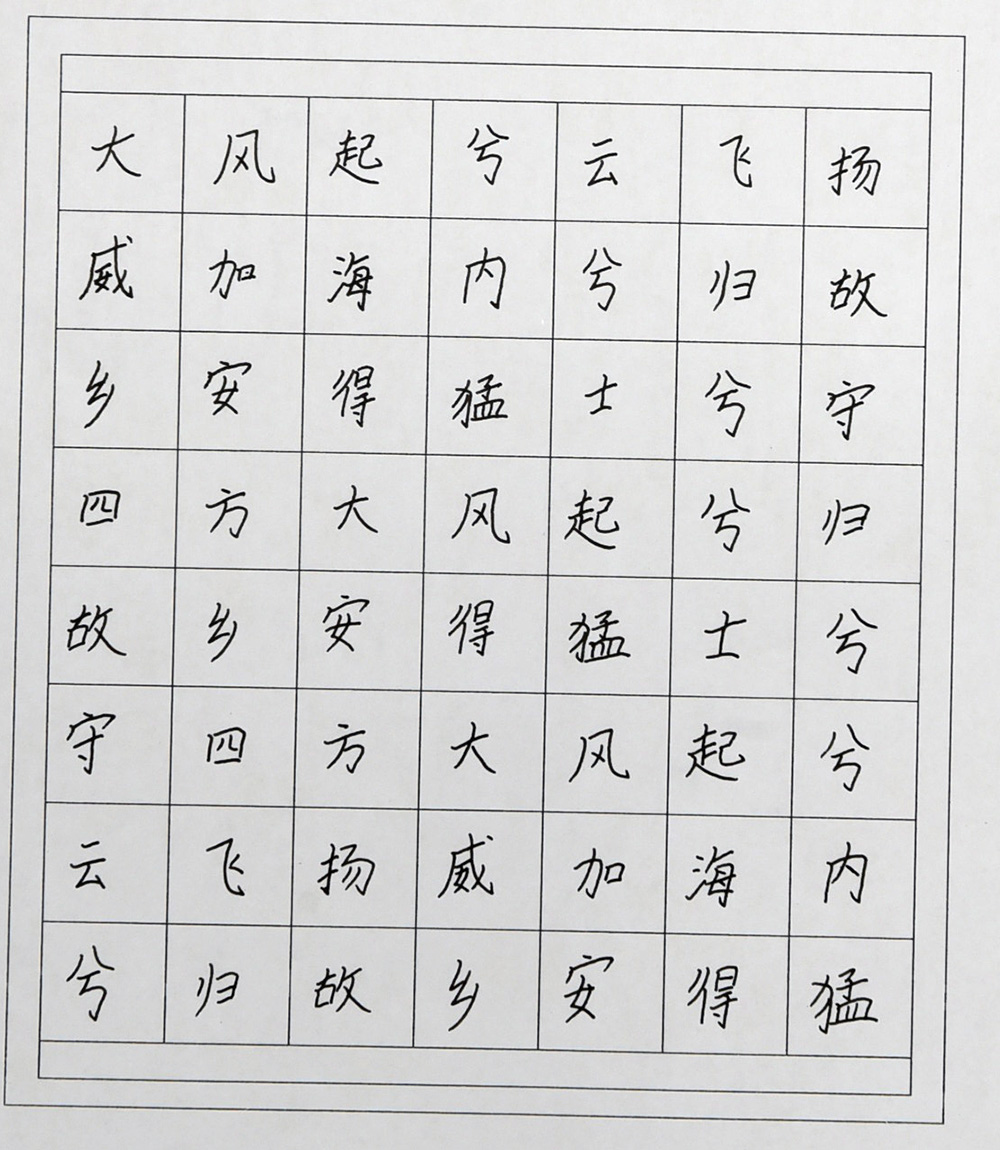 大风起兮云飞扬
威加海内兮归故
乡安得猛士兮守
四方大风起兮归
故乡安得猛士兮
守四方大风起兮
云飞扬威加海内
兮归故乡安得猛